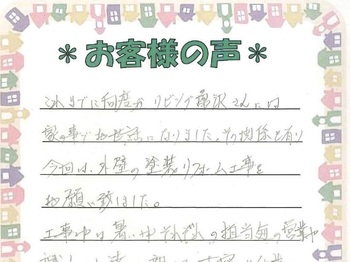 *お客様の声*
これまでに何度かリビング藤沢さんには
家の事でお世話になりました。その関係も有り
今回は、外壁の塗装リフォーム工事を
お願い致しました。
工事中は暑い中それぞれの担当毎の営業や